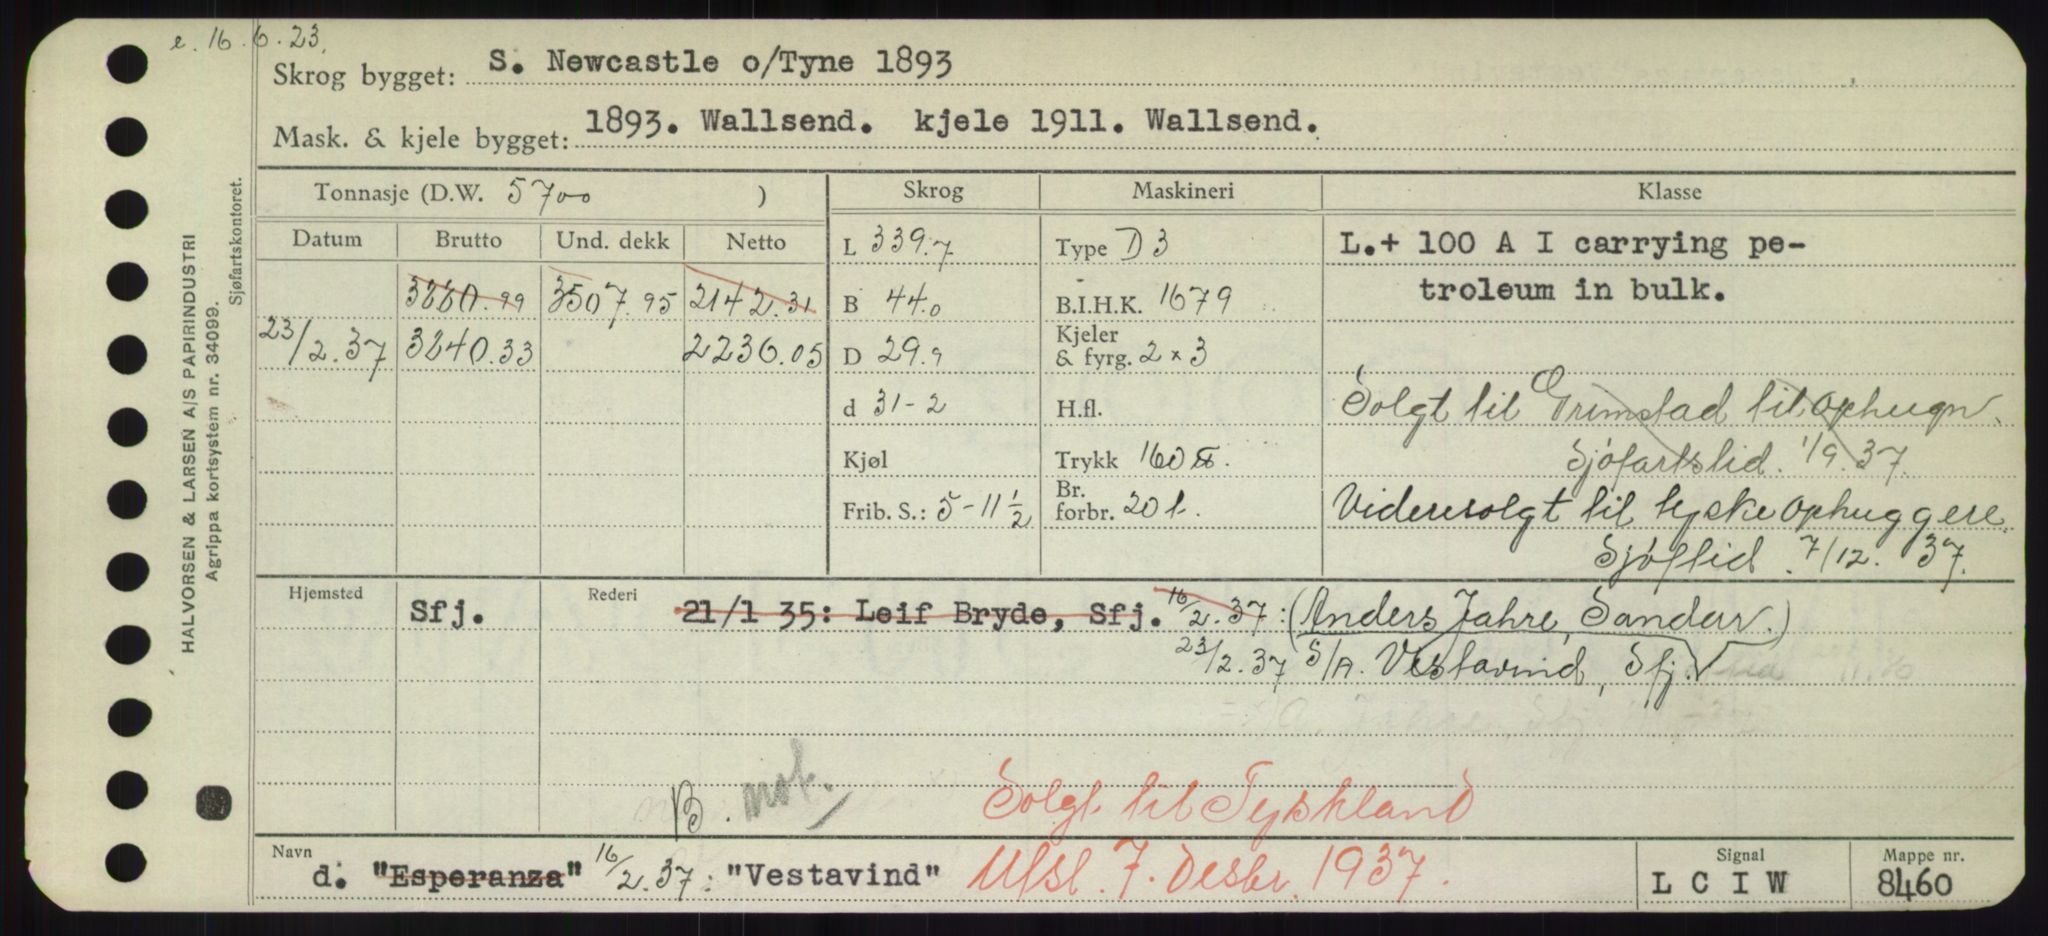 e. 16.6.23.
Skrog bygget: S. Newcastle o/Tyne 1893
Mask. & kjele bygget: 1893. Wallsend. kjele 1911. Wallsend.
HALVORSEN & LARSEN A/S PAPIRINDUSTRI
Agrippa kortsystem nr. 34099.
Sjøfartskontoret.
Tonnasje (D.W. 5700 )
Skrog
Maskineri
Klasse
Datum Brutto Und. dekk Netto
L 339.7
Type D 3
L.+ 100 A I carrying pe-
troleum in bulk.
3880.99 3507.95 2142.31
B 44.0
B.I.H.K. 1679
23/2.37 3840.33 2236.05
D 29.9
Kjeler
& fyrg. 2 x 3
d 31-2
H.fl.
Solgt til Grimstad til ophugn.
Kjøl
Trykk 160 lb.
Sjøfartstid. 1/9.37.
Frib. S.: 5-11 1/2
Br.
forbr. 20 t.
Videresolgt til tyske ophuggere.
Sjøftid. 7/12. 37.
Hjemsted Sfj.
Rederi 21/1 35: Leif Bryde, Sfj. 16/2.37: (Anders Jahre, Sandar.)
23/2.37 S/A. Vestavind, Sfj.
B. not.
Solgt til Tyskland
Navn d. "Esperanza" 16/2.37: "Vestavind" Utsl. 7. Desbr. 1937.
Signal
L C I W
Mappe nr.
8460